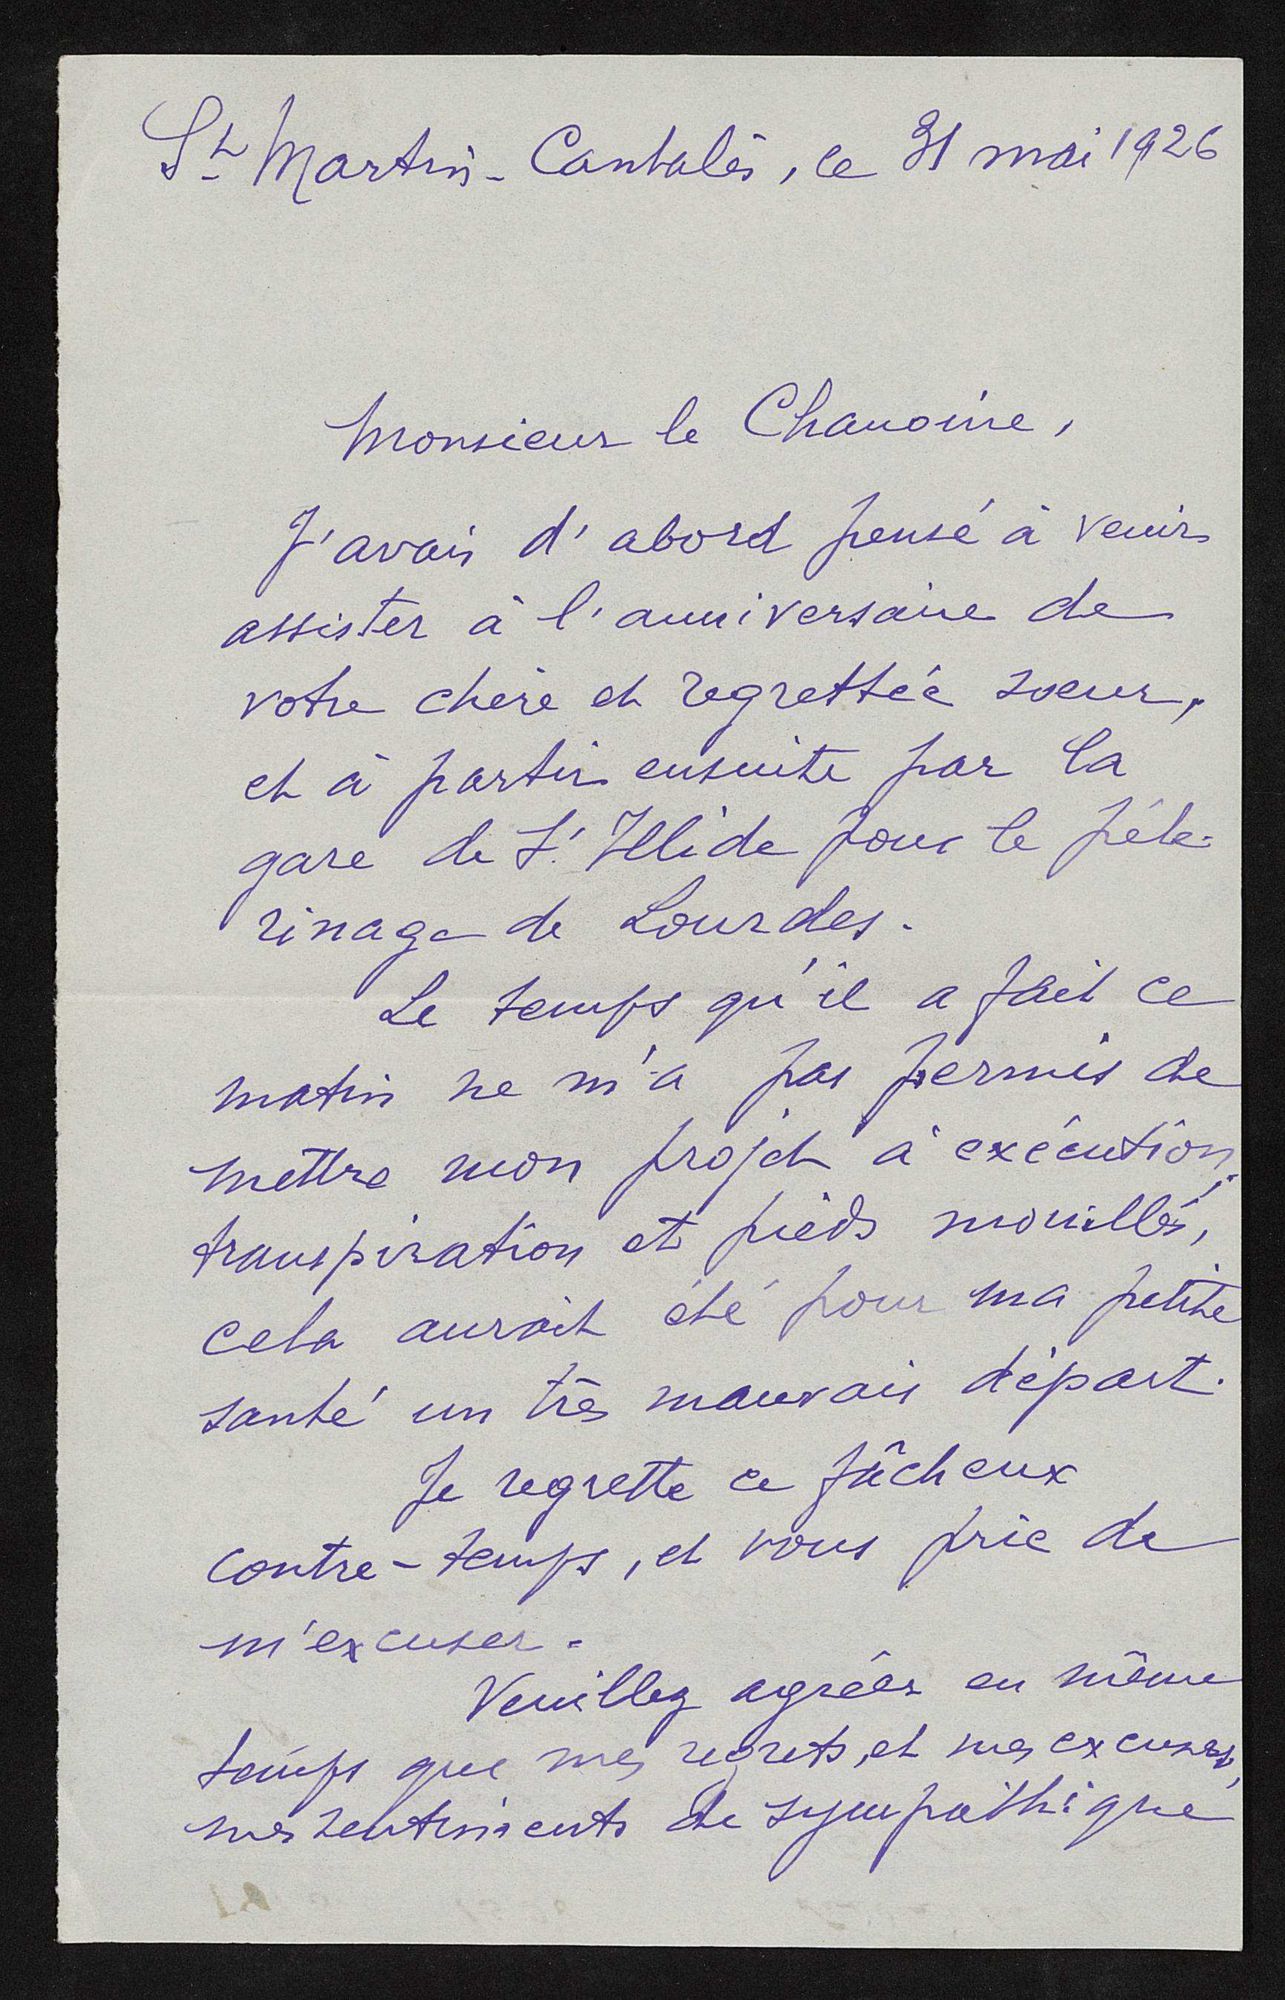 St Martin-Cantalès, ce 31 mai 1926
Monsieur le Chanoine,
J'avais d'abord pensé à venir
assister à l'anniversaire de
votre chère et regrettée sœur,
et à partir ensuite par la
gare de St Illide pour le péle-
rinage de Lourdes.
Le temps qu'il a fait ce
matin ne m'a pas permis de
mettre mon projet à exécution;
transpiration et pieds mouillés,
cela aurait été pour ma petite
santé un très mauvais départ.
Je regrette ce fâcheux
contre-temps, et vous prie de
m'excuser.
Veuillez agréer en même
temps que mes regrets, et mes excuses,
mes sentiments de sympathique